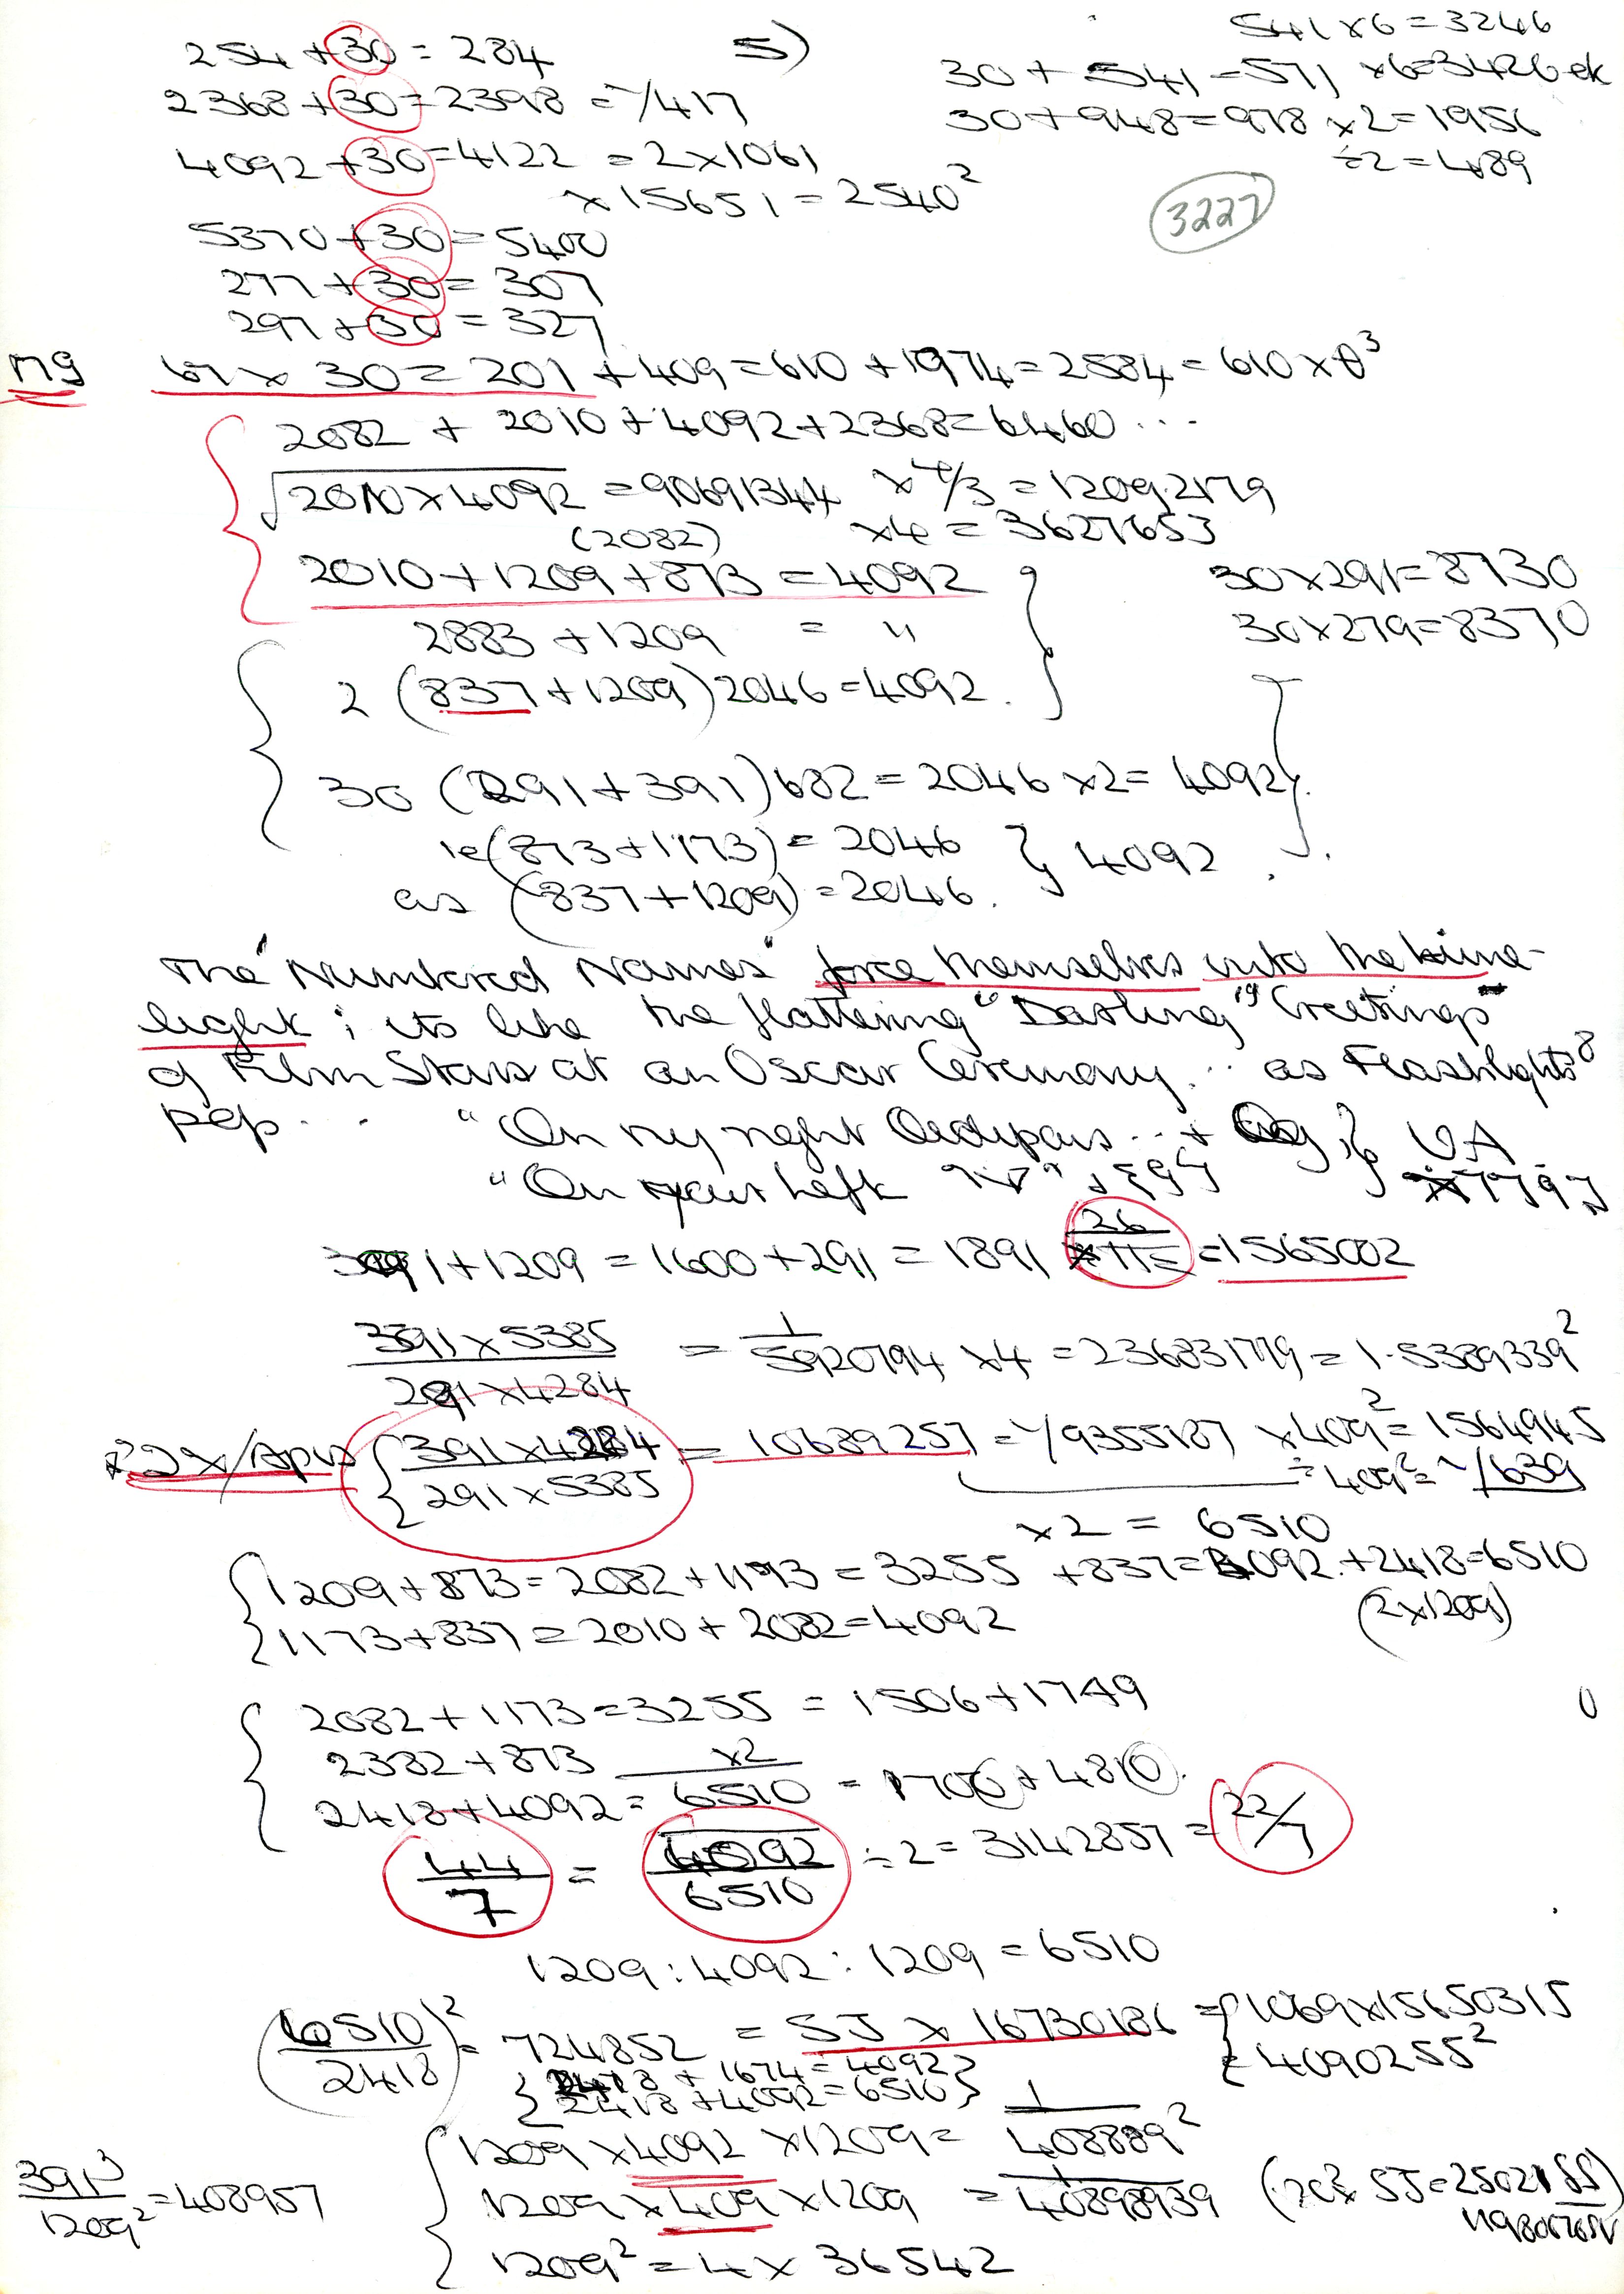 5)
254 + 30 = 284
2368 + 30 = 2398 = 1/417
4092 + 30 = 4122 = 2 x 1061
x 15651 = 2540²
5370 + 30 = 5400
277 + 30 = 307
297 + 30 = 327
541 x 6 = 3246
30 + 541 = 571 x 6 = 3426 ek
30 + 948 = 978 x 2 = 1956
÷ 2 = 489
3227
67 x 30 = 201 + 409 = 610 + 1974 = 2584 = 610 x θ³
2082 + 2010 + 4092 + 2368 = 6460 ...
√2010 x 4092 = 90691344 x 4/3 = 12092179
(2082) x 4 = 3627653
2010 + 1209 + 873 = 4092
30 x 291 = 8730
2883 + 1209 = "
30 x 279 = 8370
2 (837 + 1209) 2046 = 4092.
30 (291 + 391) 682 = 2046 x 2 = 4092
ie (873 + 1173) = 2046 } 4092.
as (837 + 1209) = 2046.
The "Numbered Names" force themselves into the Lime-
light; its like the flattering "Darling" Greetings
of Film Stars at an Oscar Ceremony... as Flashlights
pop... "On my right Oedipus... +
"On your Left
391 + 1209 = 1600 + 291 = 1891 26 = 1565002
391 x 5385 / 291 x 4284 = 1/5920794 x 4 = 236831779 = 1.5389339²
391 x 4284 / 291 x 5385 = 10689257 = 1/9355187 x 409² = 1564945
÷ 409² = 1/639
x 2 = 6510
1209 + 873 = 2082 + 1173 = 3255 + 837 = 4092. + 2418 = 6510
1173 + 837 = 2010 + 2082 = 4092 (2 x 1209)
2082 + 1173 = 3255 = 1506 + 1749
2382 + 873 x2
2418 + 4092 = 6510 = 1700 + 4810.
44/7 = 4092/6510 ÷ 2 = 3142857 = 22/7
1209 : 4092 : 1209 = 6510
(6510/2418)² = 724852 = SJ x 16730186 = { 1069 x 15650315
= 4090255²
2418 + 1674 = 4092
2418 + 4092 = 6510
1209 x 4092 x 1209 = 1/408889²
391³/1209² = 408957
1209 x 409 x 1209 = 1/40898939
1209² = 4 x 36542